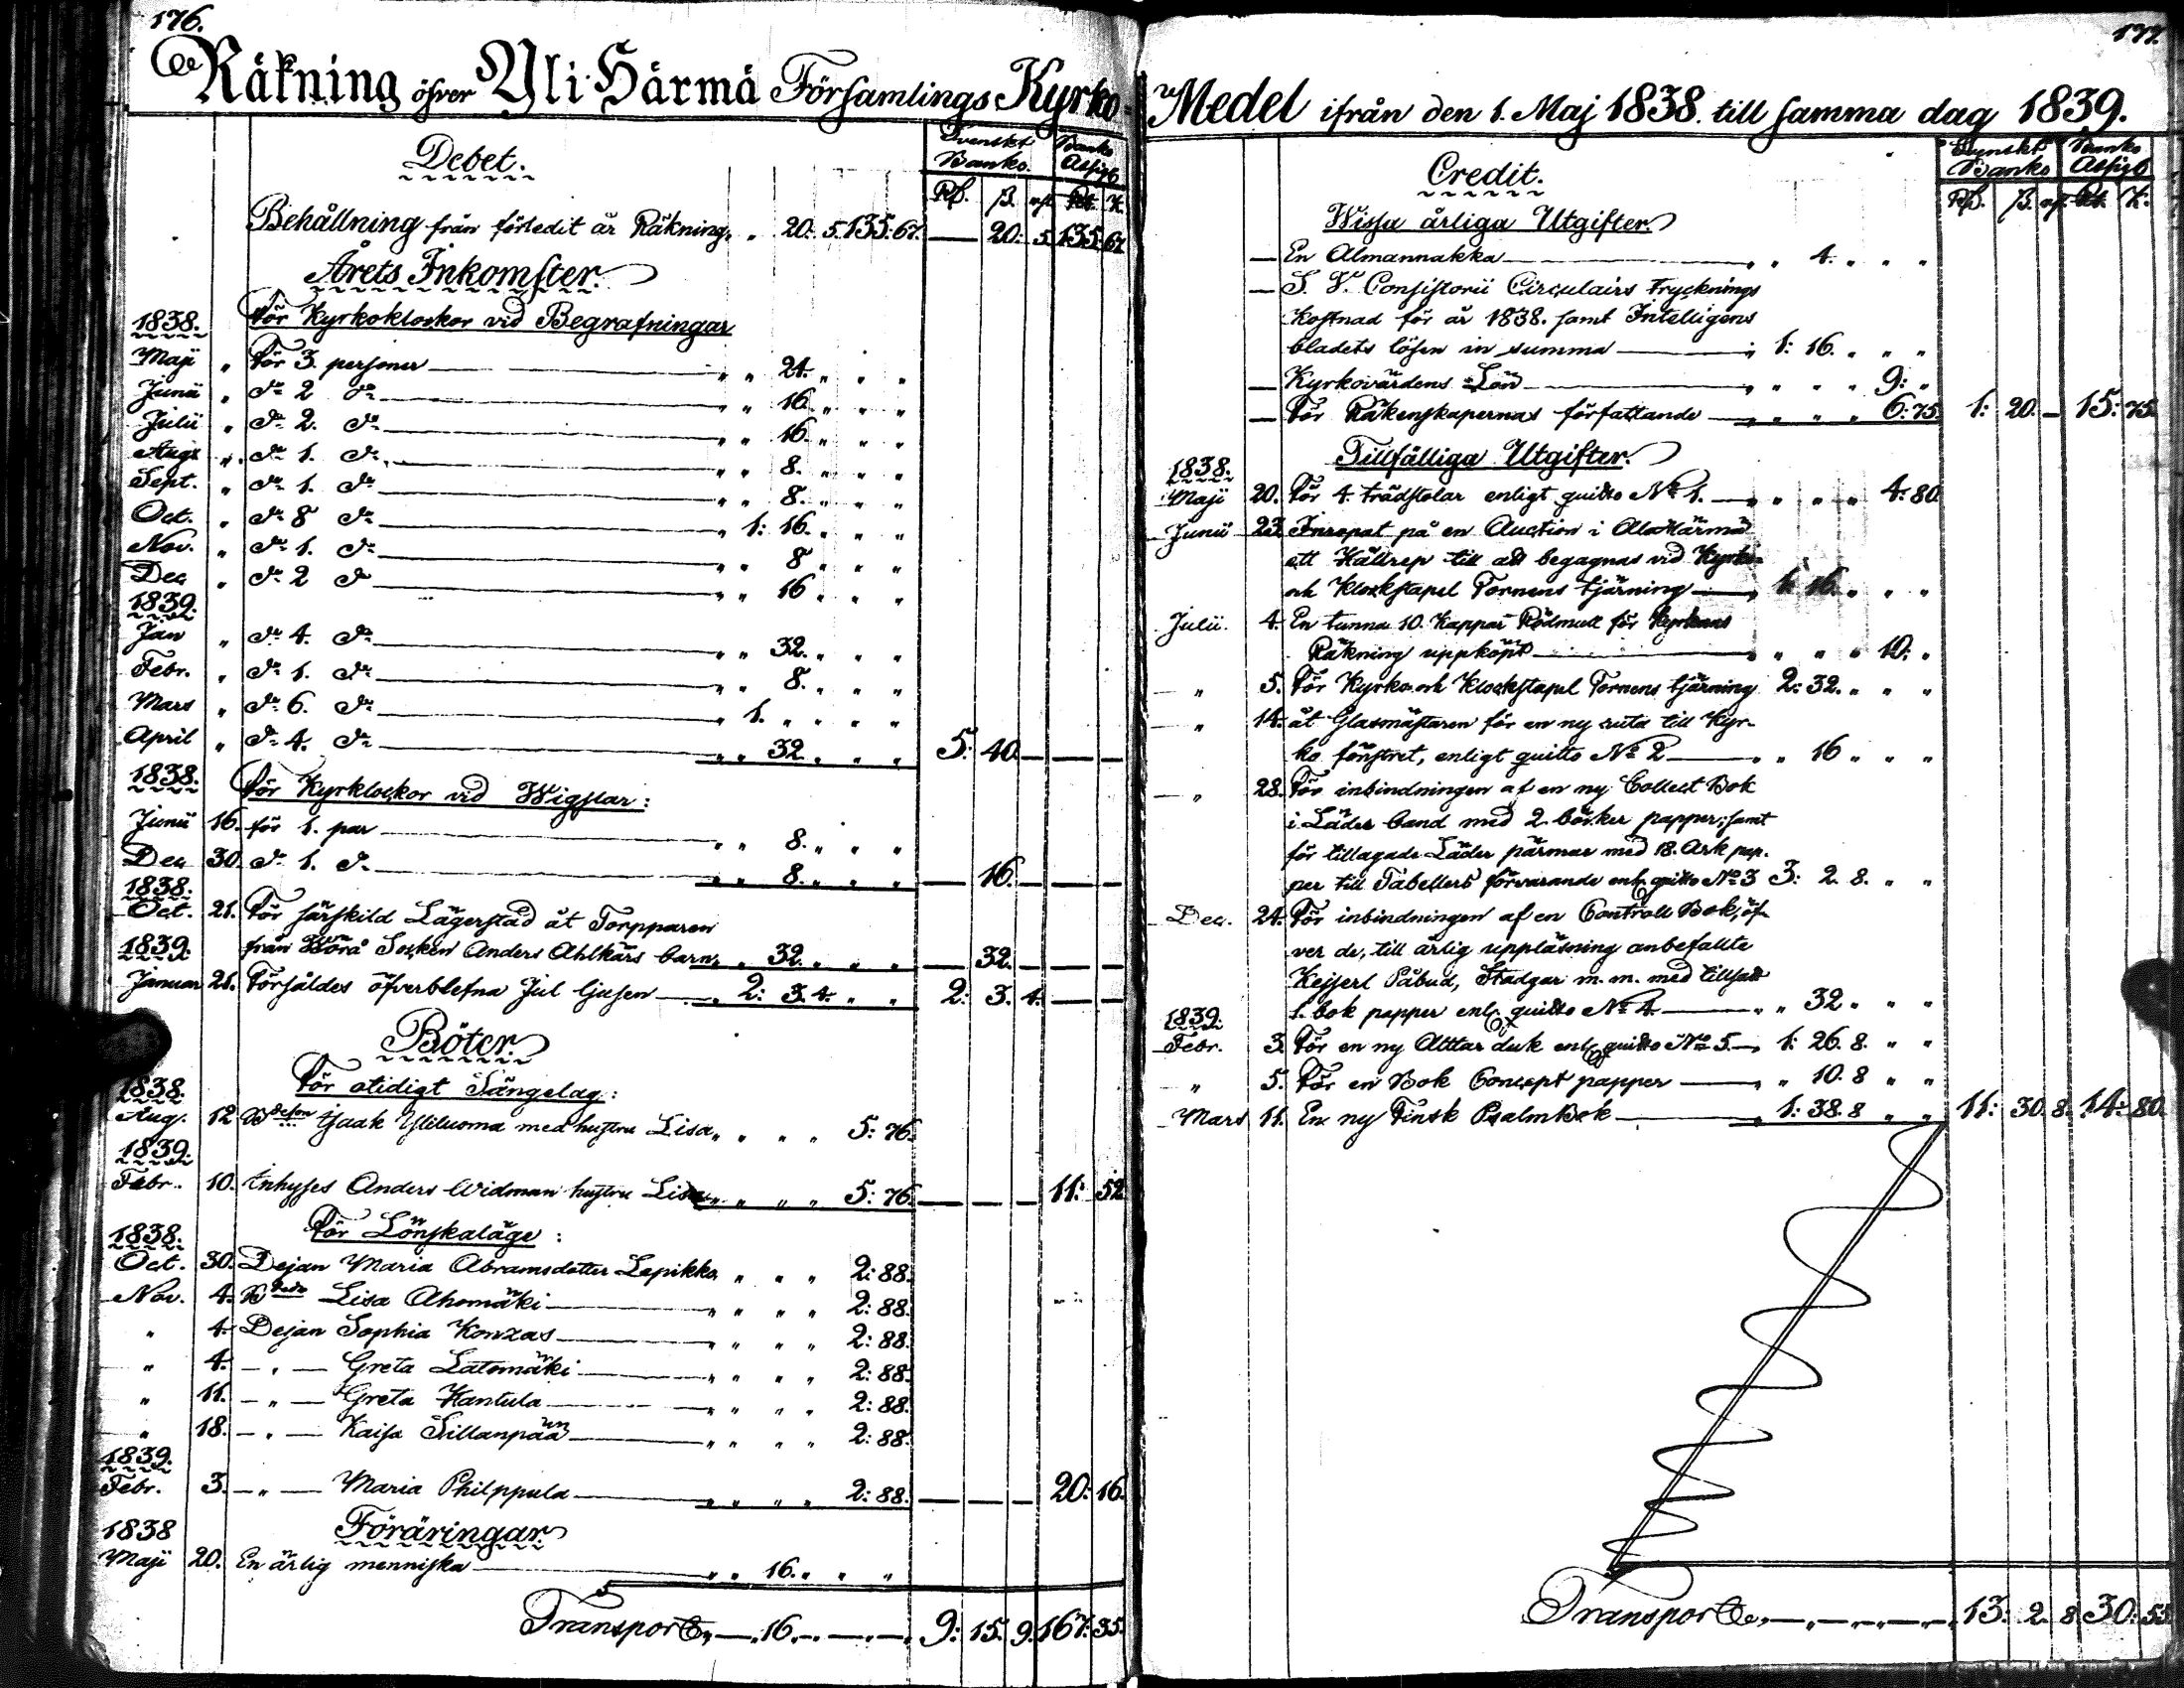 176.
Räkning öfver Yli-Härmä Församlings Kyrko-
Debet.
Svenskt Banko.
Banko Assigt
Rß. ß. rst. Rb. K.
Behållning från förledit år Räkning, " 20: 5. 135: 67. — 20: 5. 135: 67.
Årets Inkomster.
1838. För Kyrkoklockor vid Begrafningar
Maji " För 3. personer — " " 24. " " "
Junii " do 2 do — " " 16. " " "
Julii " do 2. do — " " 16. " " "
Aug. " do 1. do — " " 8. " " "
Sept. " do 1. do — " " 8. " " "
Oct. " do 8 do — " 1: 16. " " "
Nov. " do 1. do — " " 8 " " "
Dec " do 2 do — " " 16 " " "
1839.
Jan " do 4. do — " " 32. " " "
Febr. " do 1. do — " " 8. " " "
Mars " do 6. do — " 1. " " " "
April " do 4. do — " " 32 " " " 5: 40. — — —
1838. För Kyrklockor vid Wigslar:
Junii 16. för 1. par — " " 8. " " "
Dec 30. do 1. do — " " 8. " " " — 16. — — —
1838.
Oct. 21. För särskild Lägerstad åt Torpparen
från Wörå Socken Anders Ahlkärs barn " " 32. " " " — 32. — — —
1839.
Januar 21. Försåldes öfverblefna Jul ljusen — " 2: 3. 4. " " 2: 3. 4. — —
Böter.
För otidigt Sängelag:
1838.
Aug. 12 Bdeson Isaak Yliluoma med hustru Lisa " " " " 5: 76.
1839.
Febr. 10. Inhyses Anders Widman hustru Lisa " " " " 5: 76. — — — 11: 52.
För Lönskaläge:
1838.
Oct. 30. Dejan Maria Abramsdotter Lepikko " " " 2: 88.
Nov. 4. Bdedr Lisa Ahomäki — " " " " 2: 88.
" 4. Dejan Sophia Konzas — " " " " 2: 88.
" 4. — " — Greta Latomäki — " " " " 2: 88.
" 11. — " — Greta Hantula — " " " " 2: 88.
" 18. — " — Kaisa Sillanpää — " " " " 2: 88.
1839.
Febr. 3. — " — Maria Philppula — " " " " 2: 88. — — — 20: 16.
Föräringar
1838
Maji 20. En ärlig menniska — " " 16. " " "
Transport — 16. — 9: 15. 9. 167: 35.
177.
Medel ifrån den 1. Maj 1838. till samma dag 1839.
Credit.
Svenskt Banko
Banko Assigt
Rß. ß. rst. Rb. K.
Wissa årliga Utgifter
— En Almannakka — " " 4. " " "
— S. V. Consistorii Circulairs Trycknings
kostnad för år 1838. samt Intelligens
bladets lösen in summa — " 1: 16. " " "
— Kyrkovärdens Lön — " " " " 9: "
— För Räkenskapernas författande — " " " " 6: 75. 1: 20. — 15: 75.
Tillfälliga Utgifter.
1838.
Maji 20. För 4. trädstolar enligt quitto No 1. — " " " " 4: 80.
Junii 23. Inropat på en Auction i AlaHärmä
ett Hällrep till att begagnas vid Kyrko-
och Klockstapel Tornens tjärning — " 1: 16. " " "
Julii. 4. En tunna 10. Kappar Rödmull för Kyrkans
Räkning uppköpt — " " " " 10: "
" 5. För Kyrko och Klockstapel Tornens tjärning 2: 32. " " "
" 14. åt Glasmästaren för en ny ruta till Kyr-
ko fönstret, enligt quitto No 2 — " " 16 " " "
" 28. För inbindningen af en ny Collect Bok
i Läder band med 2. böcker papper; samt
för tillagade Läder pärmar med 18. Ark pap-
per till Tabellers förvarande enl. quitto No 3 3: 2. 8. " "
Dec. 24. För inbindningen af en Controll Bok, öf-
ver de, till årlig uppläsning anbefallte
Kejserl Påbud, Stadgar m. m. med tillsatt
1. bok papper enl. quitto No 4. — " " 32 " " "
1839.
Febr. 3. För en ny Alttar duk enl. quitto No 5. — " 1: 26. 8. " "
" 5. För en Bok Concept papper — " " 10. 8 " "
Mars 11. En ny Finsk Psalmbok — " 1: 38. 8 " " 11: 30. 8. 14: 80.
Transport — 13: 2. 8. 30: 55.